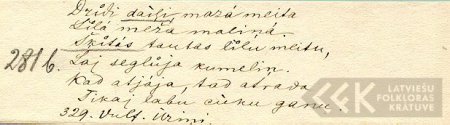 Drīdi daiļi mazā meita
Līlā meža malinā.
Šķitās tautas līlu meitu,
2816. Laj segloja kumelin.
Kad atjāja, tad atrada
Tikaj labu cūku ganu.
329. Vulf. Urini.
LATVIEŠU
FOLKLORAS
KRĀTUVE